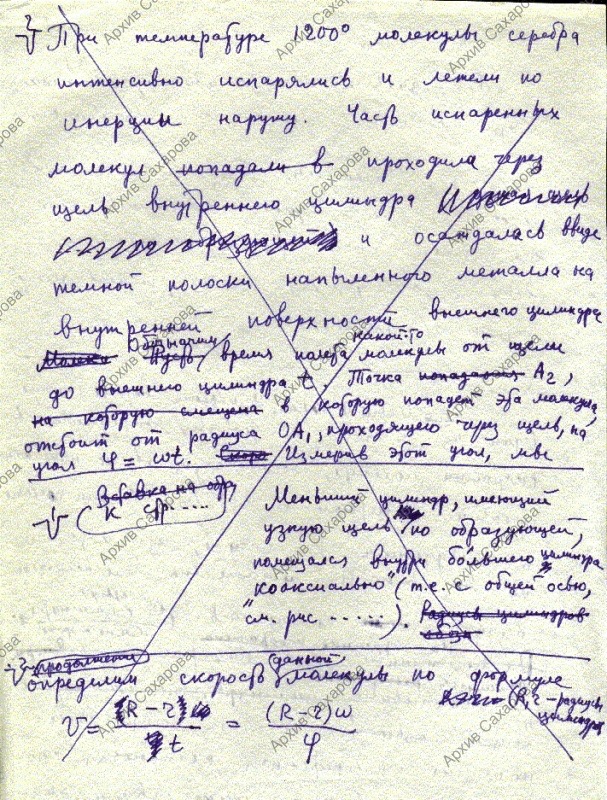 При температуре 1200° молекулы серебра
интенсивно испарялись и летели по
инерции наружу. Часть испаренных
молекул попадали в проходила через
щель внутреннего цилиндра
и осаждалась ввиде
темной полоски напыленного металла на
внутренней поверхности внешнего цилиндра
Обозначим время полета какой-то молекулы от щели
до внешнего цилиндра t. Точка попадания A2,
на которую смещена в которую попадет эта молекула,
отстоит от радиуса OA1, проходящего через щель, на
угол φ = ωt. Измерив этот угол, мы
Вставка на обр.
к стр.....
Меньший цилиндр, имеющий
узкую щель по образующей,
помещался внутри большего цилиндра
"коаксиально" (т.е. с общей осью,
см. рис .....). Радиусы цилиндров
продолжение
определим скорость данной молекулы по формуле
(R, r - радиусы
цилиндров
v = (R-r) / t = (R-r)ω / φ
Архив Сахарова